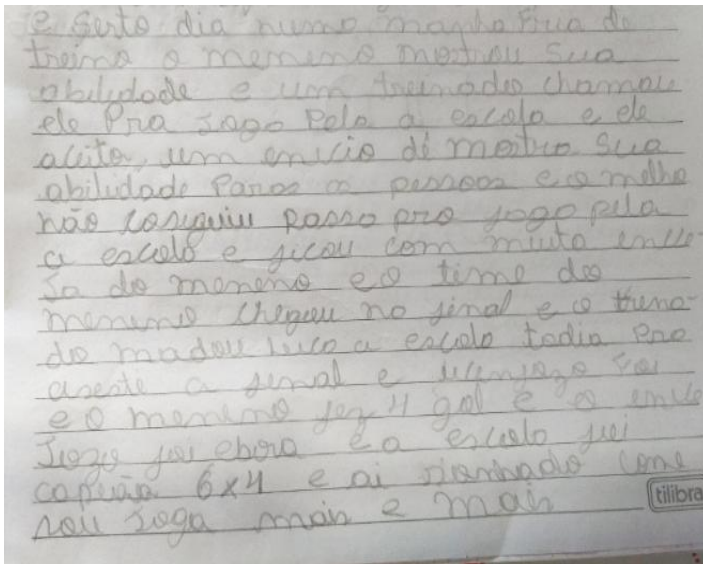 e serto dia numa manhã fria de
treino o memeno mostrou sua
abilidade e um treinado chamou
ele Pra jogo Pela a escola e ele
aceito, um enicio de mostra sua
abilidade Para as pessoas e o melho
não cosiguiu Passo pro jogo pela
a escola e ficou com muito enve-
ja do memeno e o time do
memeno chegou no final e o treina-
do madou a escola todia Pra
a final e foi
e o memeno fez 4 gol e o enve
jozo foi ebora e a escola foi
copeão 6x4 e ai come
sou joga mais e mais
tilibra